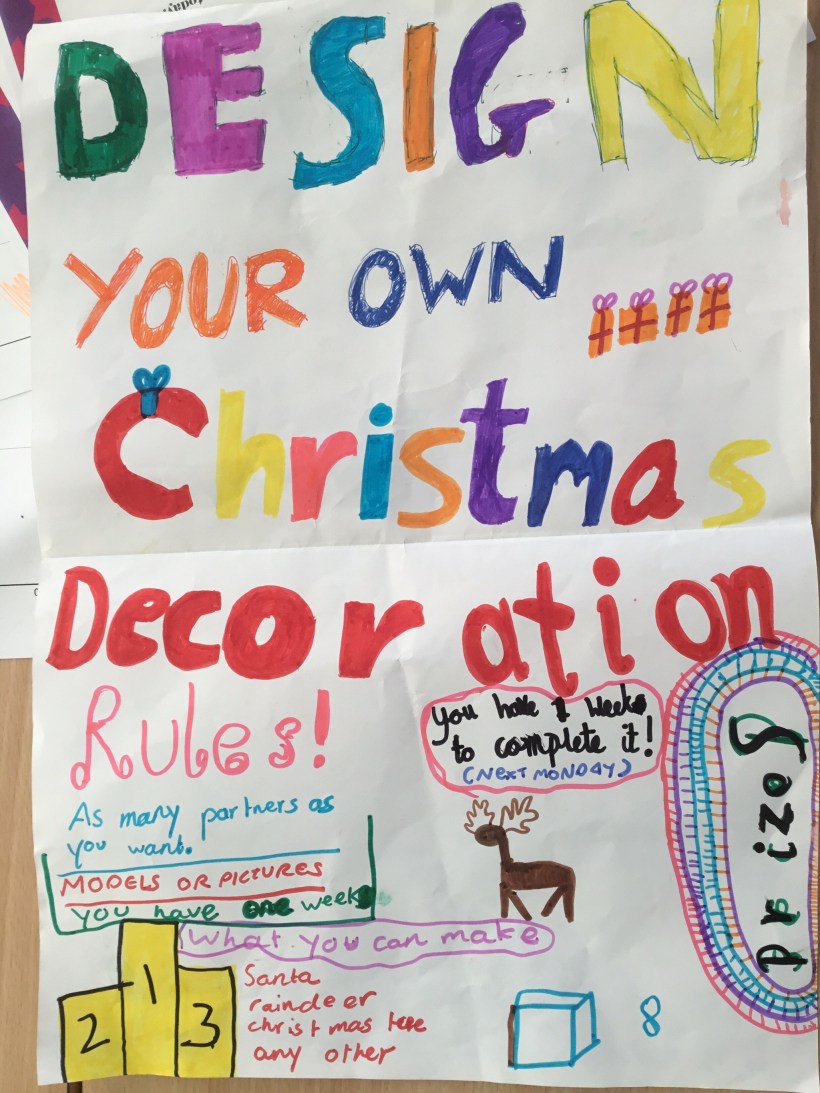 DESIGN
YOUR OWN
Christmas
Decoration
Rules!
As many partners as
you want.
MODELS OR PICTURES
you have one week
You have 1 week
to complete it!
(NEXT MONDAY)
Prizes
What you can make
Santa
raindeer
christmas tree
any other
1
2
3
8